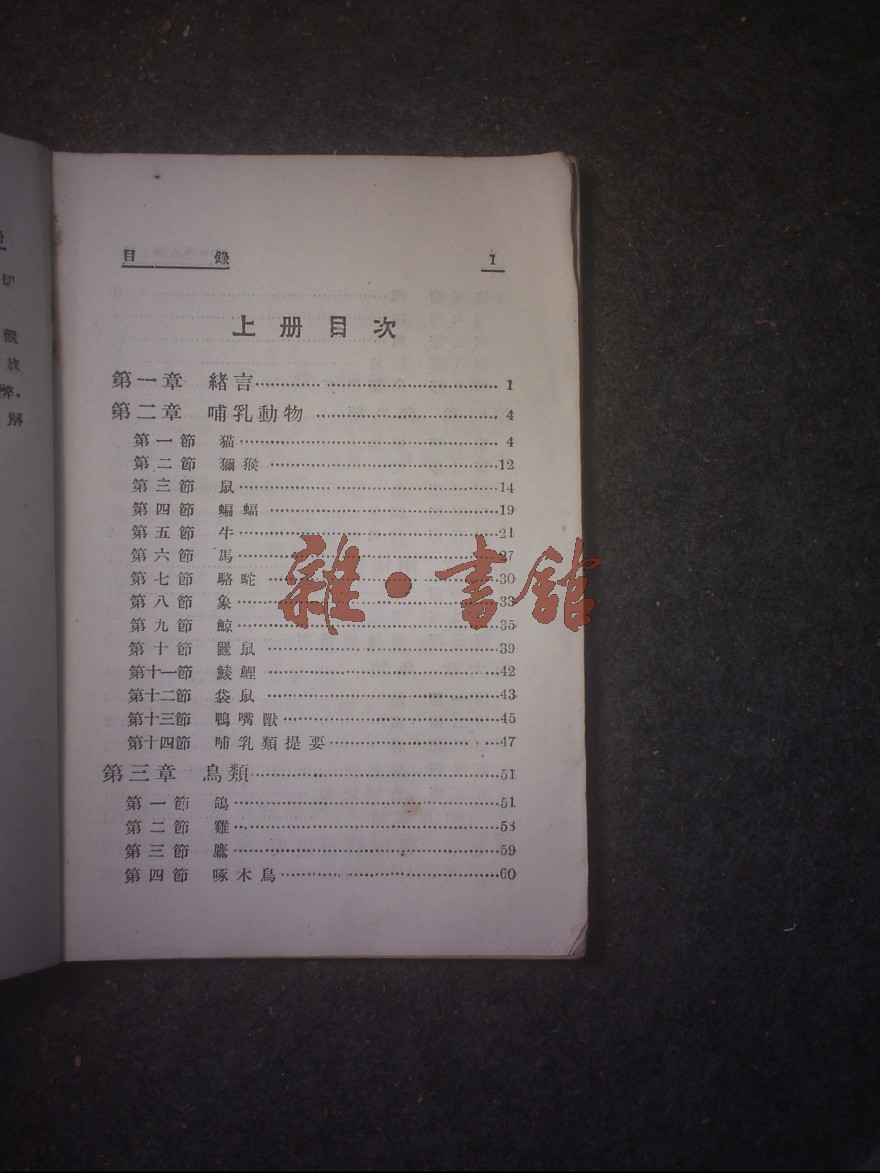 目錄 1
上册目次
第一章 緒言 1
第二章 哺乳動物 4
第一節 猫 4
第二節 獼猴 12
第三節 鼠 14
第四節 蝙蝠 19
第五節 牛 21
第六節 馬 27
第七節 駱駝 30
第八節 象 33
第九節 鯨 35
第十節 鼠 39
第十一節 鯪鯉 42
第十二節 袋鼠 43
第十三節 鴨嘴獸 45
第十四節 哺乳類提要 47
第三章 鳥類 51
第一節 鴿 51
第二節 雞
第三節 鷹 59
第四節 啄木鳥 60
切
觀
放
弊。
解
雜·書館